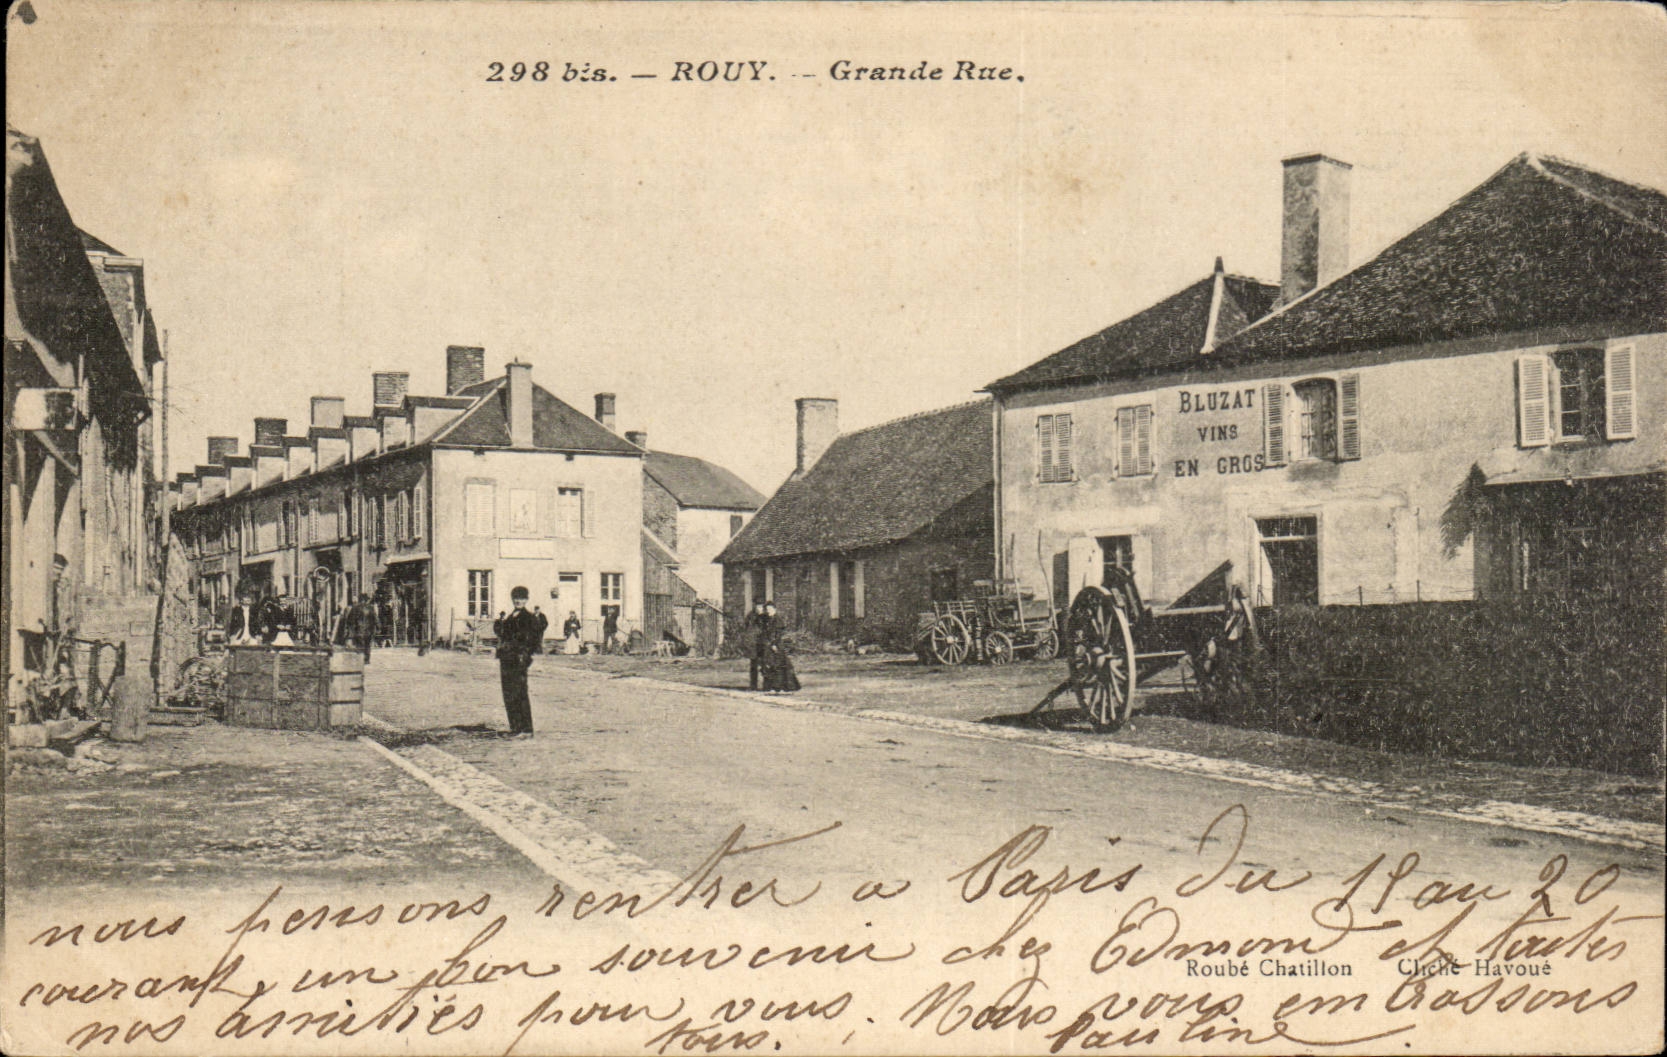 298 bis. — ROUY. — Grande Rue.
BLUZAT
VINS
EN GROS
nous pensons rentrer a Paris du 19 au 20
courant, un bon souvenir chez Edmond et toutes
Roubé Chatillon Cliché Havoué
nos amitiés pour vous. Nous vous embrassons
tous. Pauline.